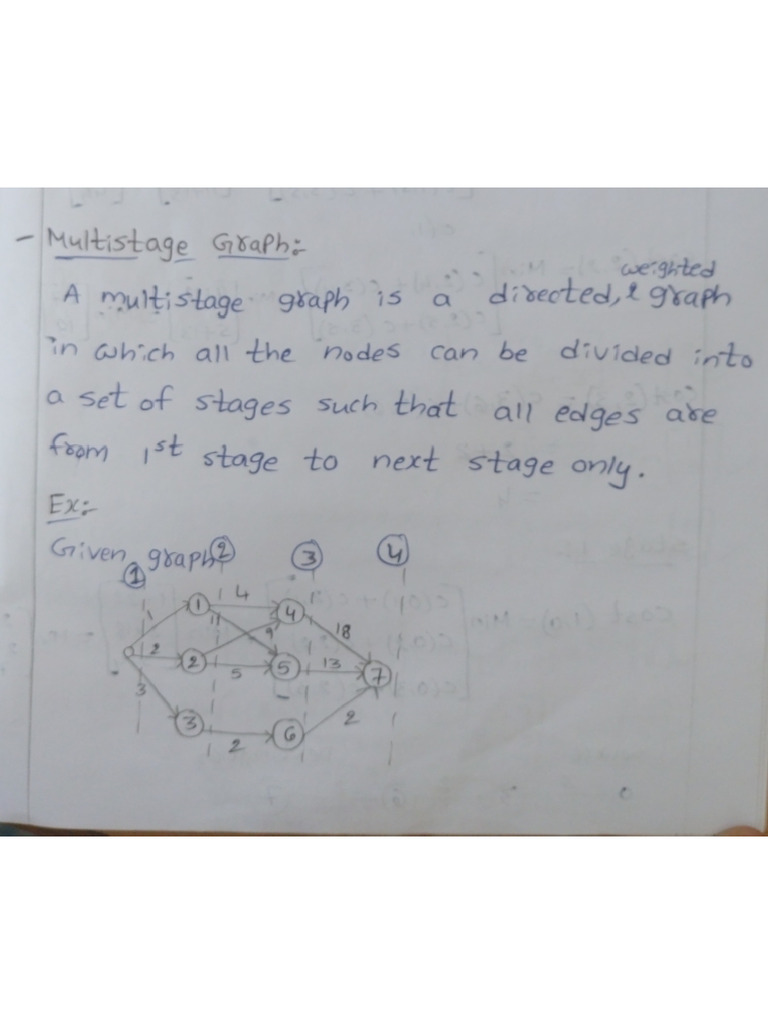 - Multistage Graph:-
weighted
A multistage graph is a directed, & graph
in which all the nodes can be divided into
a set of stages such that all edges are
from 1st stage to next stage only.
Ex:-
Given graph
1 2 3 4
1 4 4 18
1 11 9
0 2 2 5 5 13 7
3 3 2 6 2